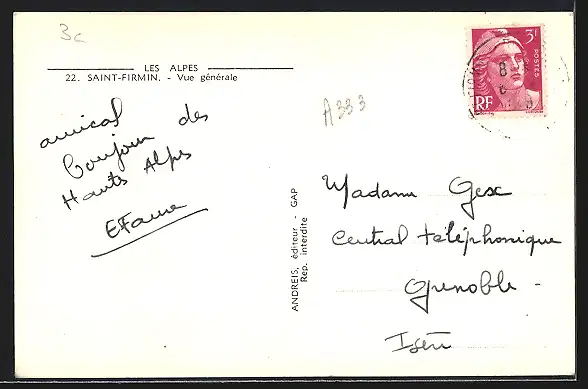 3c
LES ALPES
22. SAINT-FIRMIN. - Vue générale
amical
bonjour des
Hautes Alpes
EFaure
A333
ANDREIS, éditeur - GAP
Rep. interdite
3F
POSTES
RF
Madame Gex
Central téléphonique
Grenoble -
Isère